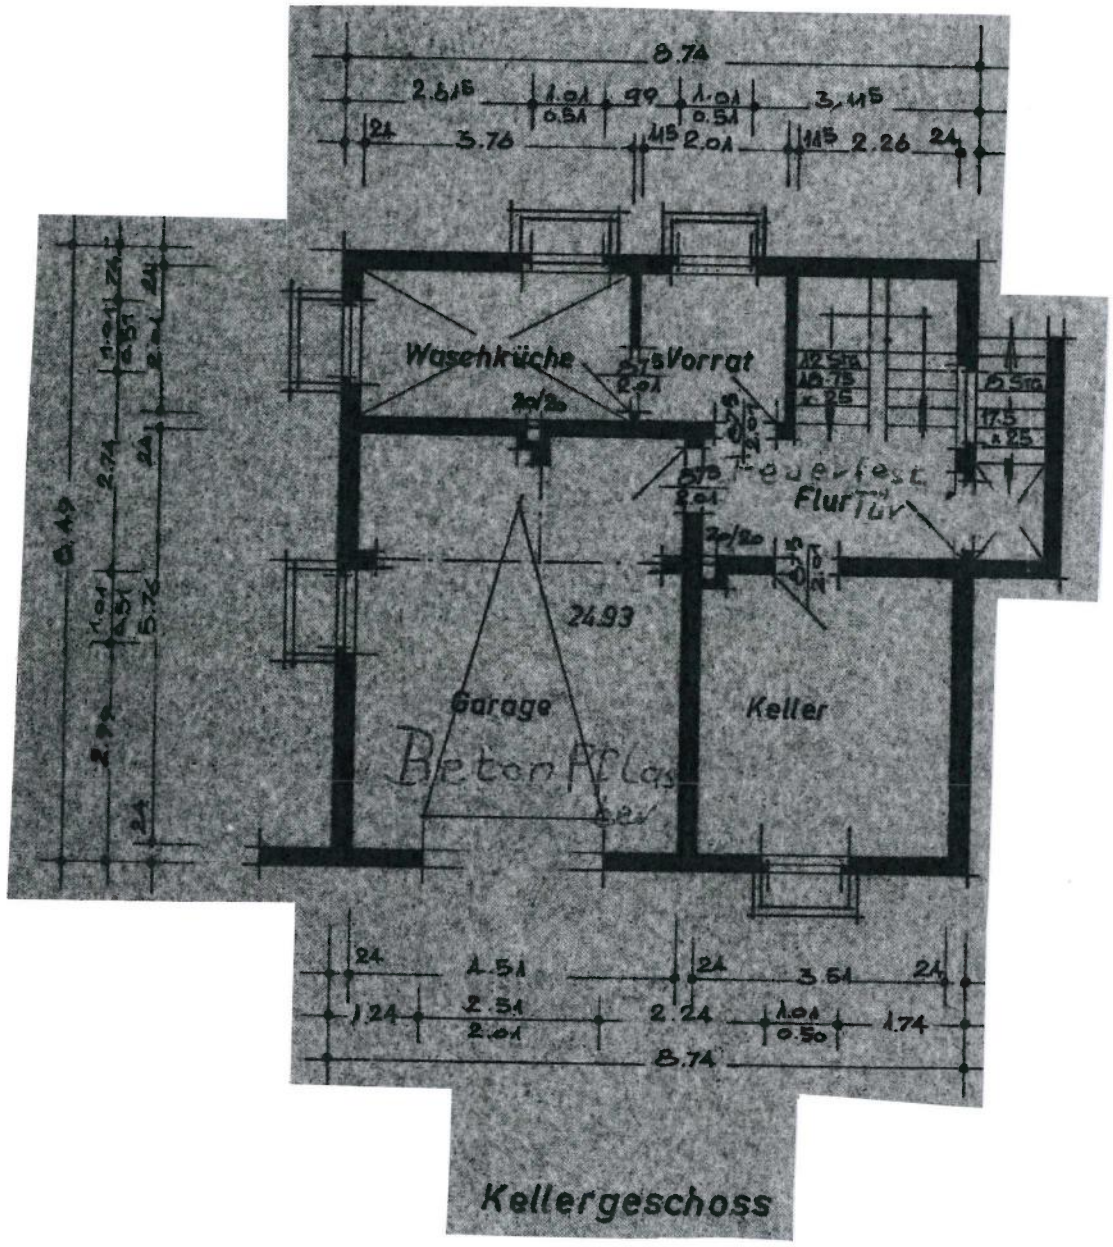 8.74
2.61⁵ 1.01 99 1.01 3,11⁵
0.51 0.51
24 3.76 11⁵ 2.01 11⁵ 2.26 24
8.49
74 1.01 0.51 2.74 1.01 0.51 2.99
24 2.01 24 5.76 24
Waschküche
87⁵
2.01
Vorrat
12 Stg
18.75
x 25
15 Stg
17.5
x 25
20/20
87⁵
2.01
87⁵
2.01
Feuerfest
Flur Tür
20/20
87⁵
2.01
24.93
Garage
Keller
Beton Pflas
ter
24 4.51 24 3.51 24
1.24 2.51 2.24 1.01 1.74
2.01 0.50
8.74
Kellergeschoss